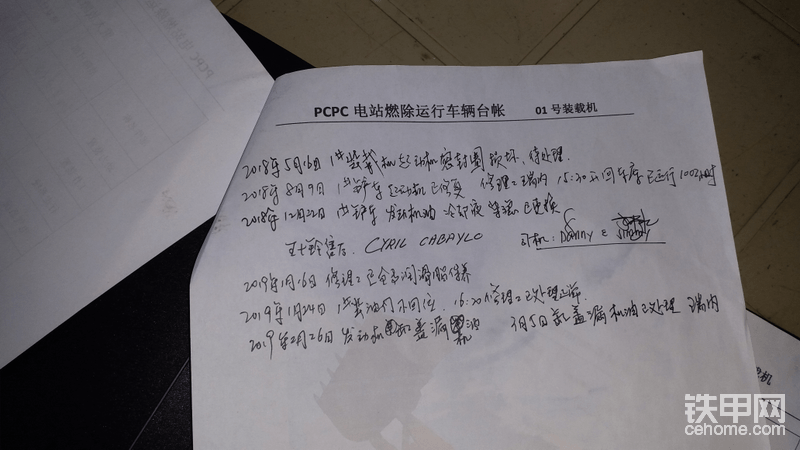 PCPC 电站燃除运行车辆台帐 01号装载机
2018年5月16日 1#装载机起动机密封圈损坏,待处理.
2018年8月9日 1#铲车起动机已修复 修理工瑞内 15:30 回车库已运行1002小时
2018年12月22日 1#铲车发动机油 冷却液 等滤已更换
售后. CYRIL CABAYLO 司机: Danny &
2019年1月16日 修理工已全车润滑脂保养
2019年1月24日 1#柴油门不回位. 16:20修理工已处理正常.
2019年2月26日 发动机 缸盖漏机油 3月5日缸盖漏机油已处理 瑞内
铁甲网
cehome.com